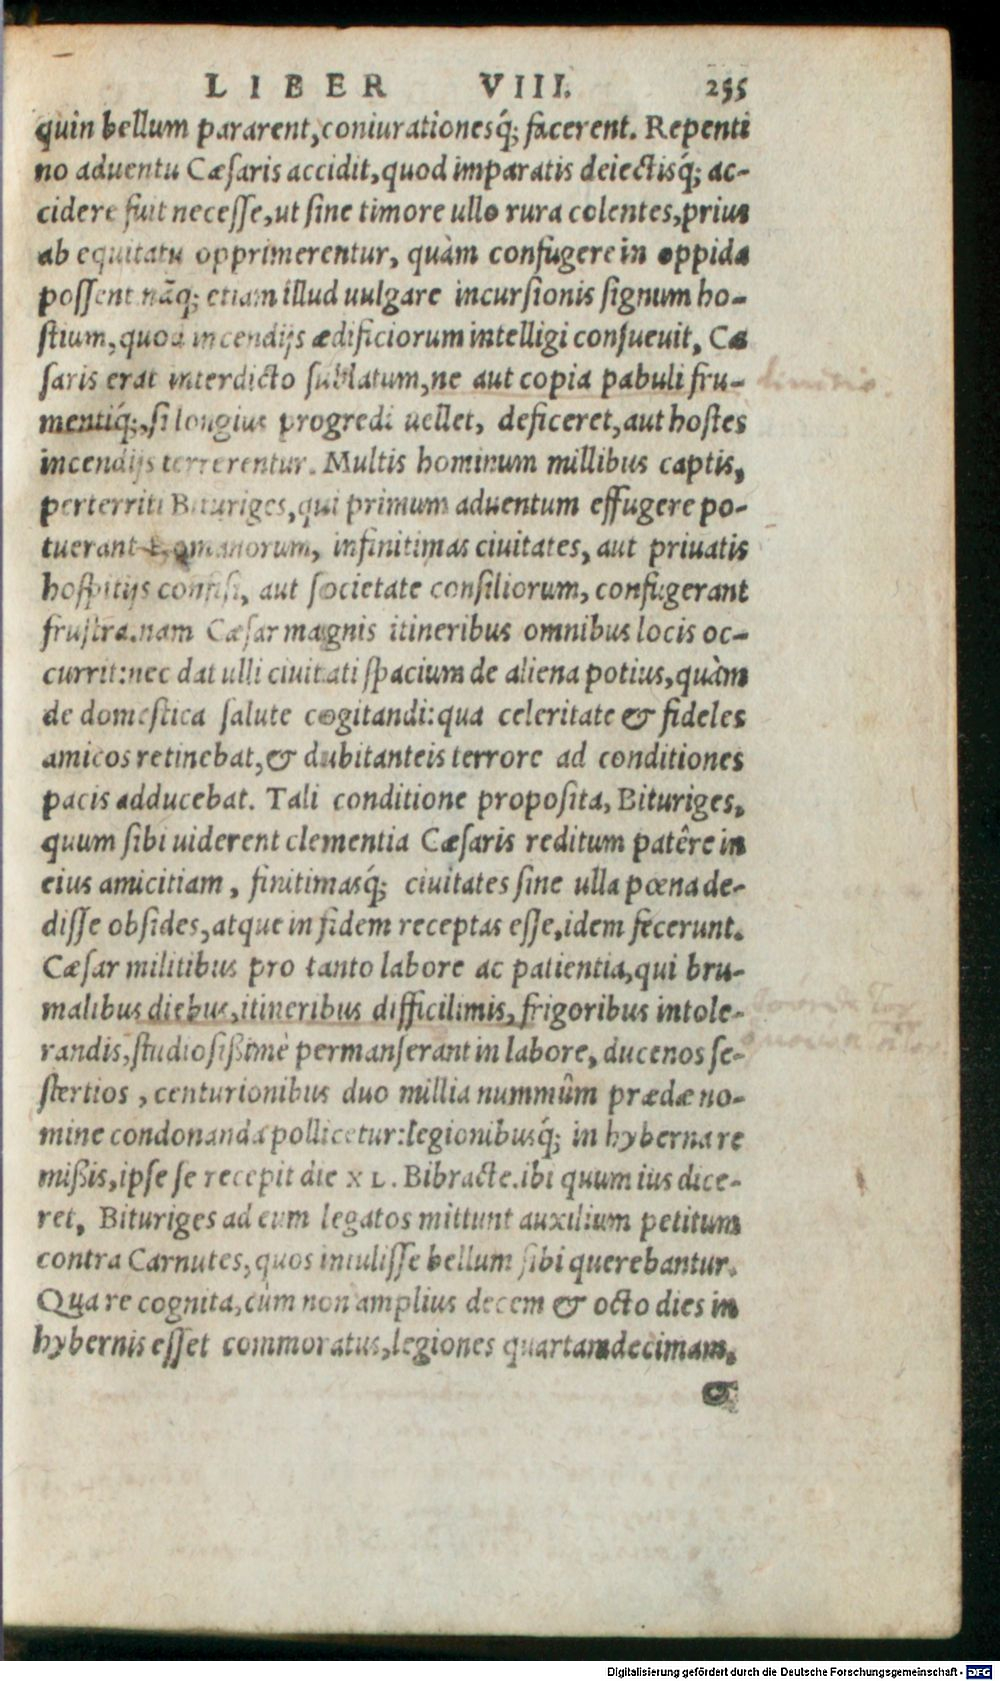 LIBER VIII. 255
quin bellum pararent, coniurationesq́; facerent. Repenti
no aduentu Cæſaris accidit, quod imparatis deiectisq́; ac-
cidere fuit neceſſe, ut ſine timore ullo rura colentes, prius
ab equitatu opprimerentur, quàm confugere in oppida
poſſent nãq; etiam illud uulgare incurſionis ſignum ho-
ſtium, quod incendijs ædificiorum intelligi conſueuit, Cæ
ſaris erat interdicto ſublatum, ne aut copia pabuli fru-
mentiq́;, ſi longius progredi uellet, deficeret, aut hoſtes
incendijs terrerentur. Multis hominum millibus captis,
perterriti Bituriges, qui primum aduentum effugere po-
tuerant Romanorum, infinitimas ciuitates, aut priuatis
hoſpitijs confiſi, aut ſocietate conſiliorum, confugerant
fruſtra. nam Cæſar magnis itineribus omnibus locis oc-
currit: nec dat ulli ciuitati ſpacium de aliena potius, quàm
de domeſtica ſalute cogitandi: qua celeritate & fideles
amicos retinebat, & dubitanteis terrore ad conditiones
pacis adducebat. Tali conditione propoſita, Bituriges,
quum ſibi uiderent clementia Cæſaris reditum patêre in
eius amicitiam, finitimasq́; ciuitates ſine ulla pœna de-
diſſe obſides, atque in fidem receptas eſſe, idem fecerunt.
Cæſar militibus pro tanto labore ac patientia, qui bru-
malibus diebus, itineribus difficilimis, frigoribus intole-
randis, ſtudioſißimè permanſerant in labore, ducenos ſe-
ſtertios, centurionibus duo millia nummûm prædæ no-
mine condonanda pollicetur: legionibusq́; in hyberna re
mißis, ipſe ſe recepit die XL. Bibracte. ibi quum ius dice-
ret, Bituriges ad eum legatos mittunt auxilium petitum
contra Carnutes, quos intuliſſe bellum ſibi querebantur.
Qua re cognita, cùm non amplius decem & octo dies in
hybernis eſſet commoratus, legiones quartamdecimam,
&
Digitalisierung gefördert durch die Deutsche Forschungsgemeinschaft - DFG